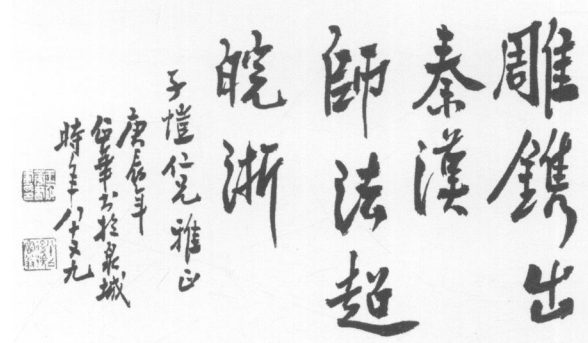 雕鐫出
秦漢
師法超
皖浙
子愷仁兄雅正
庚辰年
書於泉城
時年八十又九